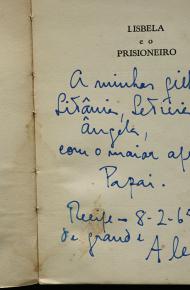 LISBELA
e o
PRISIONEIRO
A minhas
Litânia, Letícia
Ângela,
com o maior
Papai.
Recife - 8-2-65
de grande